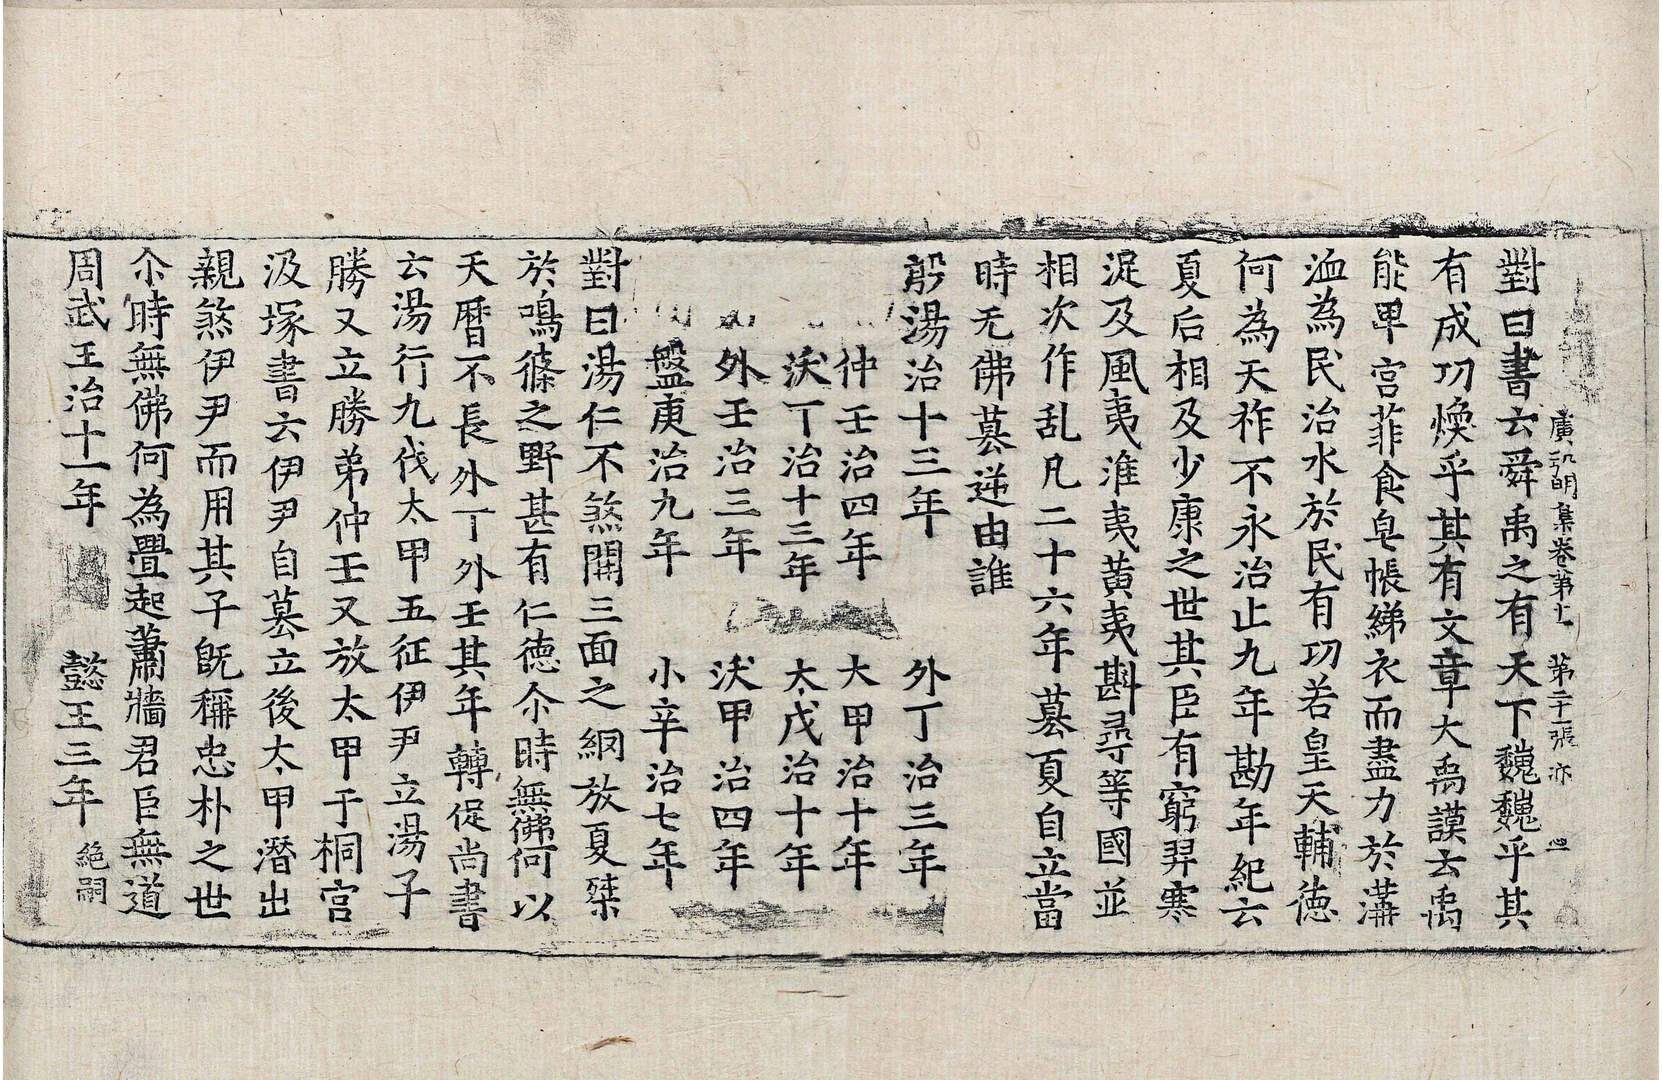 廣弘明集卷第十一 第二十張 亦
對曰書云舜禹之有天下魏魏乎其
有成功煥乎其有文章大禹謨云禹
能卑宮菲食皂帳綈衣而盡力於溝
洫為民治水於民有功若皇天輔德
何為天祚不永治止九年勘年紀云
夏后相及少康之世其臣有窮羿寒
浞及風夷淮夷黃夷斟尋等國並
相次作乱凡二十六年墓夏自立當
時无佛墓逆由誰
殷湯治十三年 外丁治三年
仲壬治四年 大甲治十年
沃丁治十三年 太戊治十年
外壬治三年 沃甲治四年
盤庚治九年 小辛治七年
對曰湯仁不煞開三面之網放夏桀
於鳴篠之野甚有仁德尒時無佛何以
天曆不長外丁外壬其年轉促尚書
云湯行九伐太甲五征伊尹立湯子
勝又立勝弟仲壬又放太甲于桐宮
汲塚書云伊尹自墓立後太甲潛出
親煞伊尹而用其子旣稱忠朴之世
尒時無佛何為疊起蕭牆君臣無道
周武王治十一年 懿王三年 絕嗣